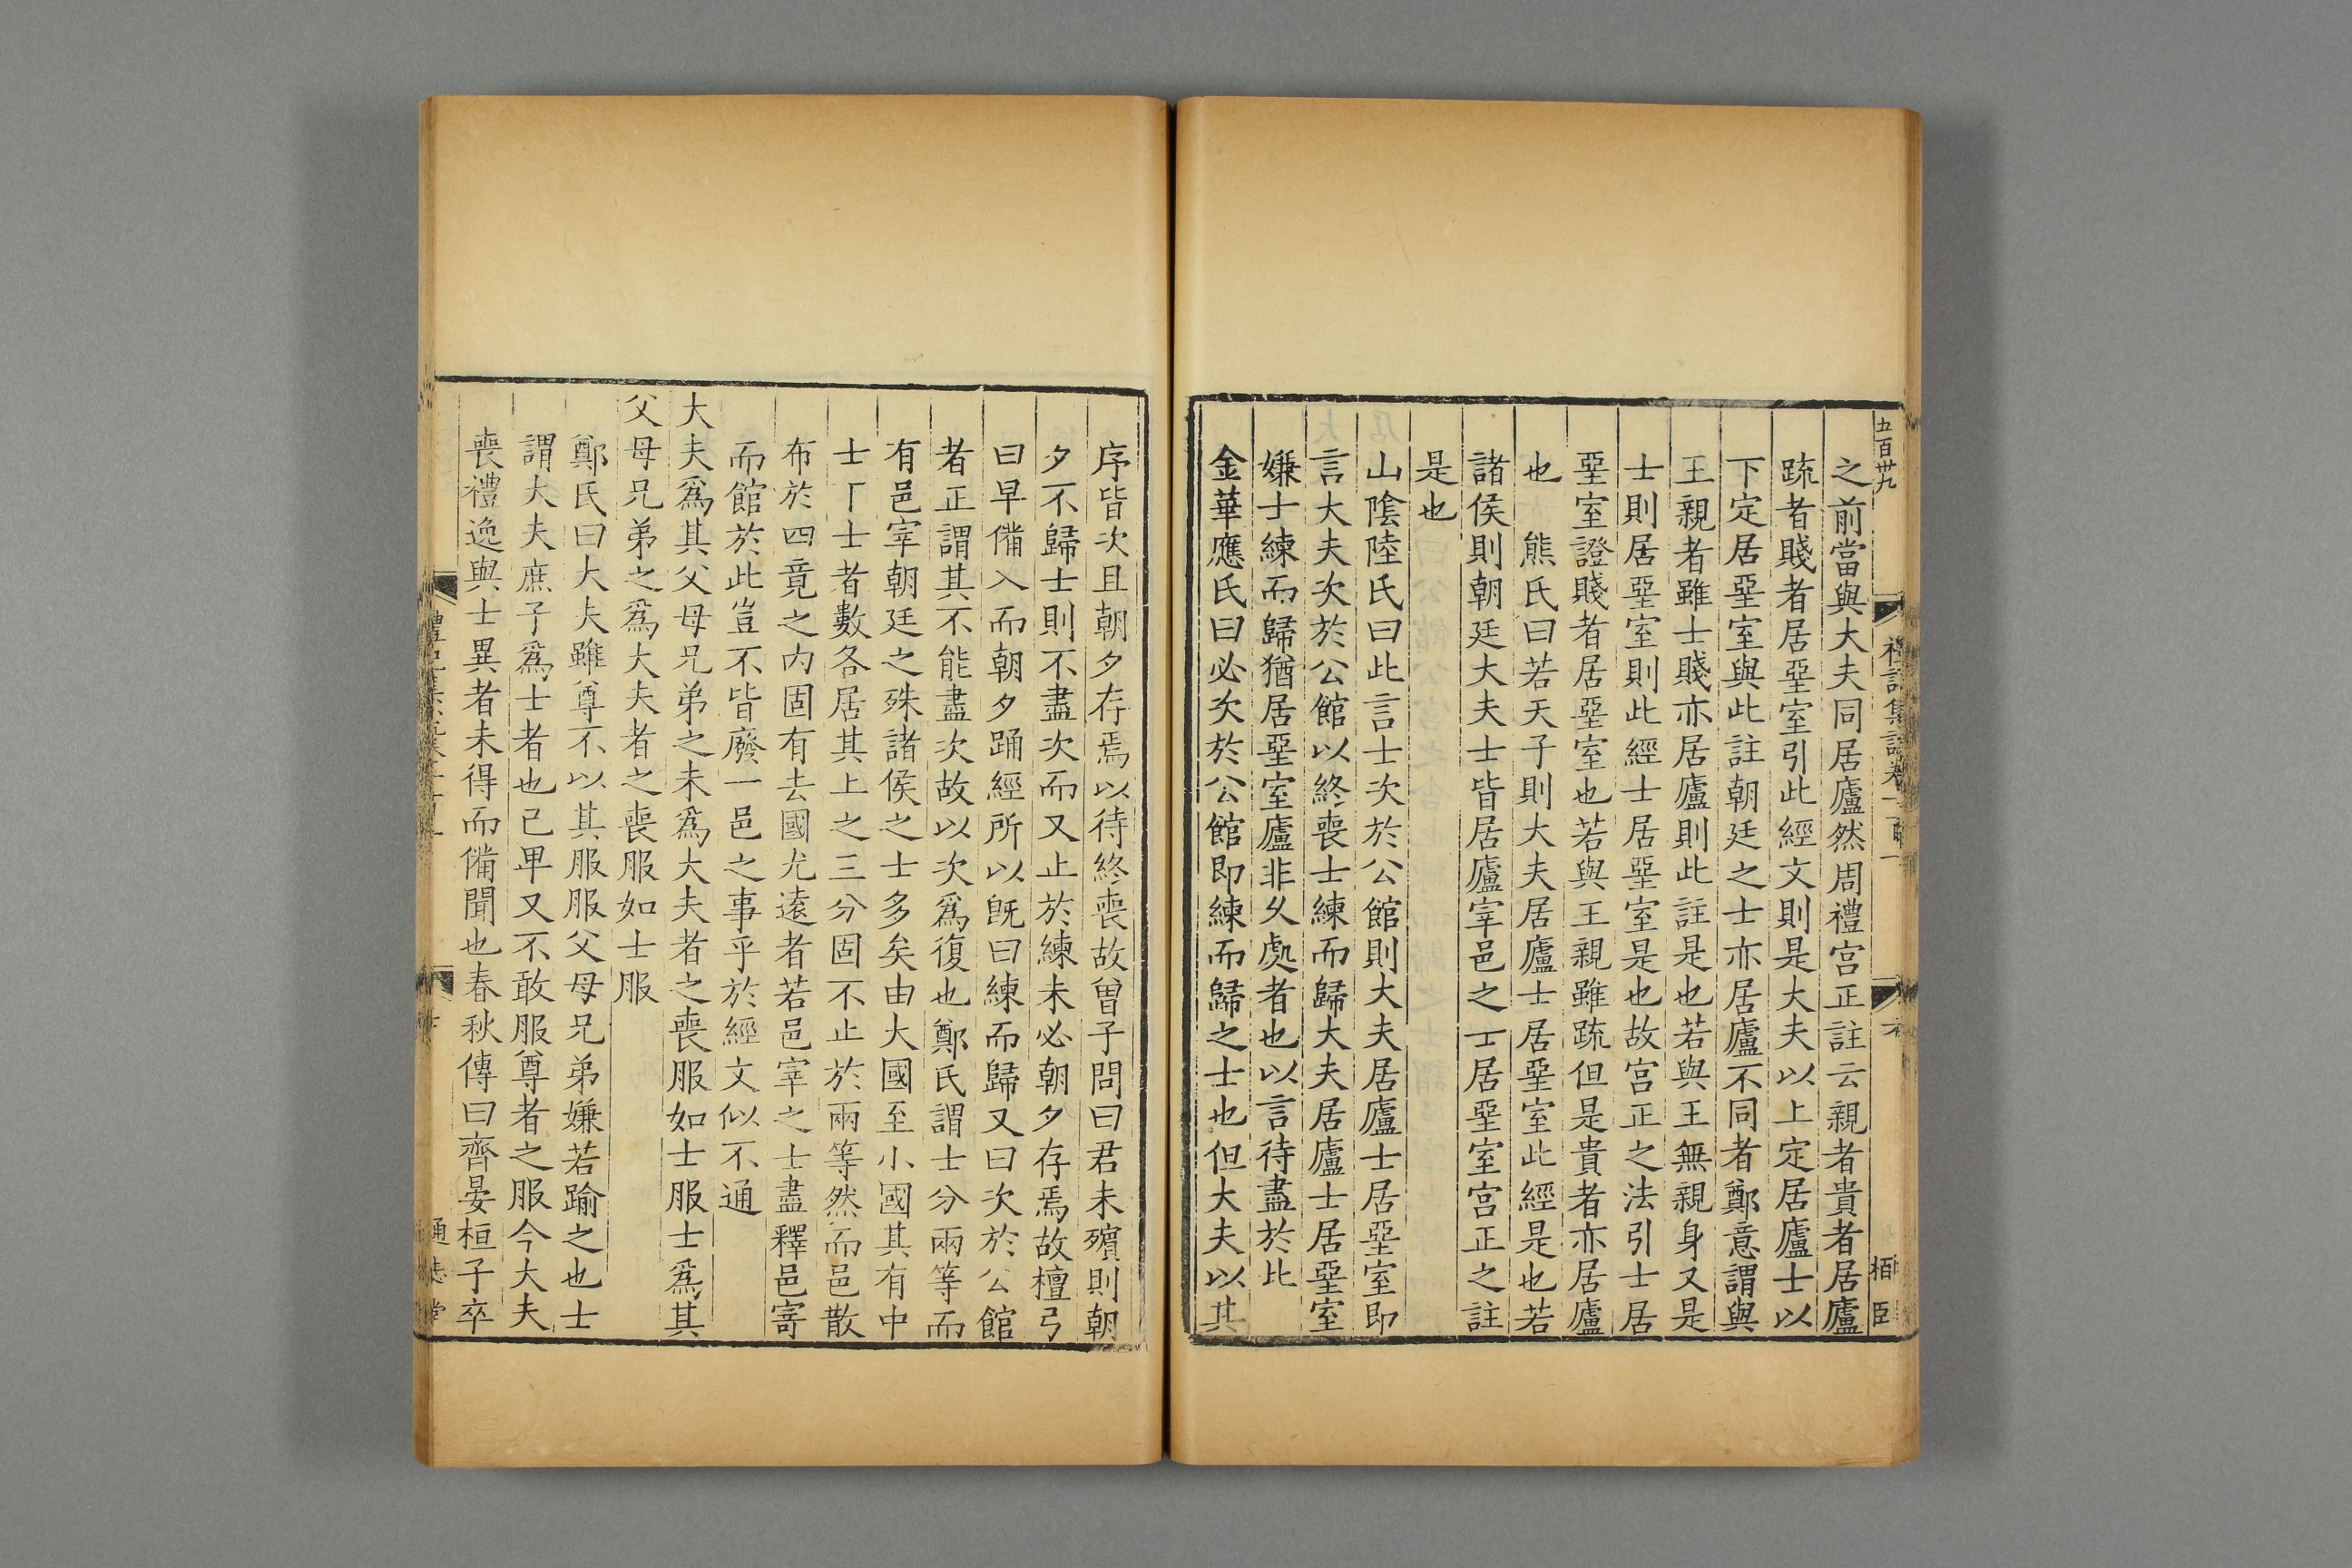 五百卅九
禮記集說卷一百一
栢臣
之前當與大夫同居廬然周禮宮正註云親者貴者居廬
疏者賤者居堊室引此經文則是大夫以上定居廬士以
下定居堊室與此註朝廷之士亦居廬不同者鄭意謂與
王親者雖士賤亦居廬則此註是也若與王無親身又是
士則居堊室則此經士居堊室是也故宮正之法引士居
堊室證賤者居堊室也若與王親雖疏但是貴者亦居廬
也　熊氏曰若天子則大夫居廬士居堊室此經是也若
諸侯則朝廷大夫士皆居廬宰邑之士居堊室宮正之註
是也
山陰陸氏曰此言士次於公館則大夫居廬士居堊室即
言大夫次於公館以終喪士練而歸大夫居廬士居堊室
嫌士練而歸猶居堊室廬非久處者也以言待盡於此
金華應氏曰必次於公館即練而歸之士也但大夫以其
序皆次且朝夕存焉以待終喪故曾子問曰君未殯則朝
夕不歸士則不盡次而又止於練未必朝夕存焉故檀弓
曰早備入而朝夕踊經所以旣曰練而歸又曰次於公館
者正謂其不能盡次故以次爲復也鄭氏謂士分兩等而
有邑宰朝廷之殊諸侯之士多矣由大國至小國其有中
士丅士者數各居其上之三分固不止於兩等然而邑散
布於四竟之內固有去國尤遠者若邑宰之士盡釋邑寄
而館於此豈不皆廢一邑之事乎於經文似不通
大夫爲其父母兄弟之未爲大夫者之喪服如士服士爲其
父母兄弟之爲大夫者之喪服如士服
鄭氏曰大夫雖尊不以其服服父母兄弟嫌若踰之也士
謂大夫庶子爲士者也已卑又不敢服尊者之服今大夫
喪禮逸與士異者未得而備聞也春秋傳曰齊晏桓子卒
通志堂